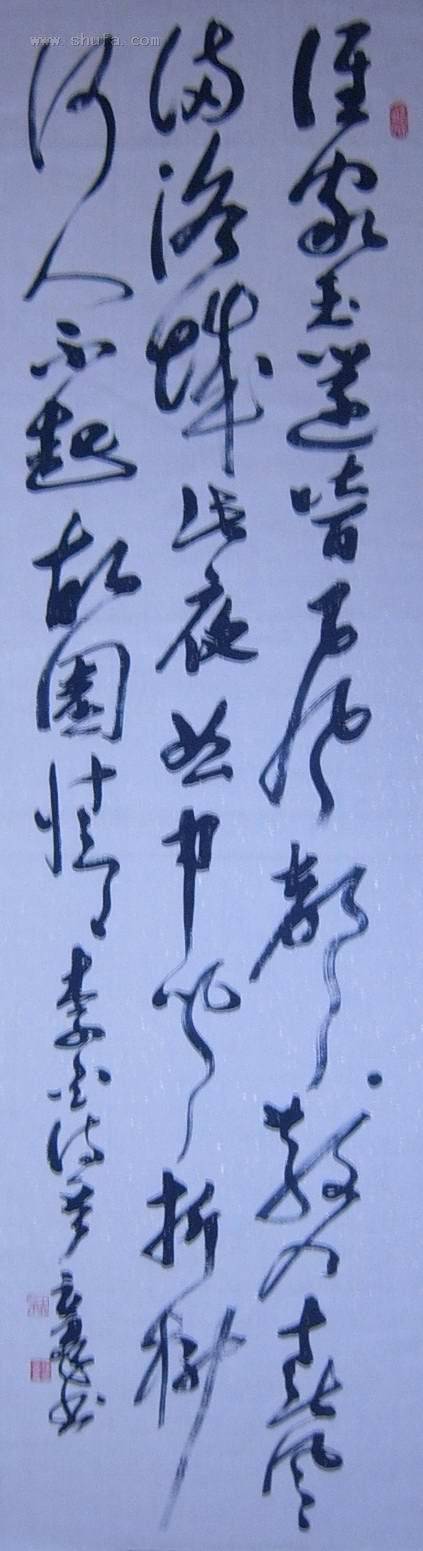 www.shufa.com
誰家玉篴暗飛聲散入春風
滿洛城此夜曲中聞折柳
何人不起故園情李白詩
書